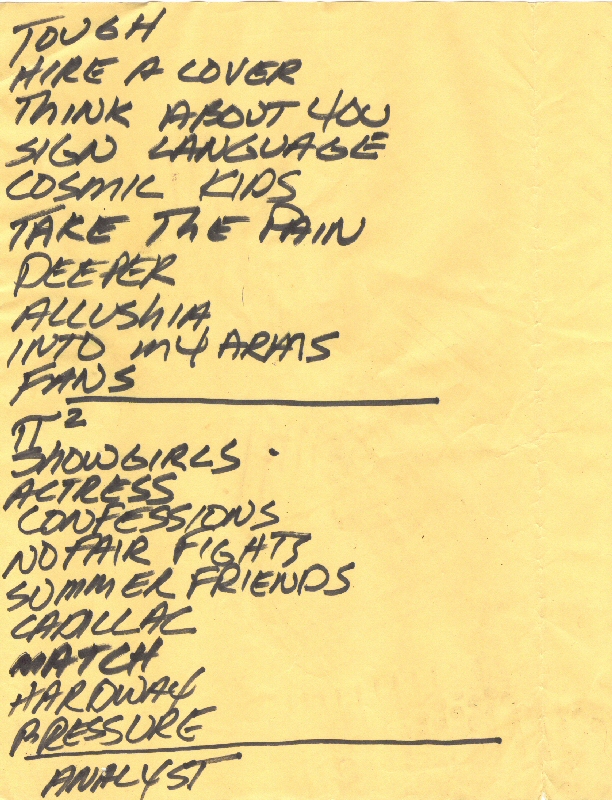 TOUGH
HIRE A LOVER
THINK ABOUT YOU
SIGN LANGUAGE
COSMIC KIDS
TAKE THE PAIN
DEEPER
ALLUSHIA
INTO MY ARMS
FANS
π²
SHOWGIRLS .
ACTRESS
CONFESSIONS
NO FAIR FIGHTS
SUMMER FRIENDS
CADILLAC
MATCH
HARDWAY
PRESSURE
ANALYST